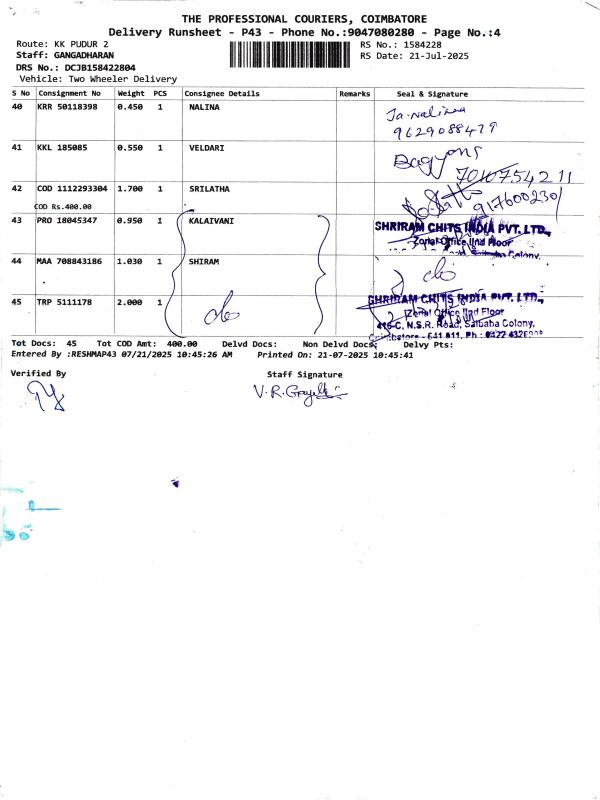 THE PROFESSIONAL COURIERS, COIMBATORE
Delivery Runsheet - P43 - Phone No.:9047080280 - Page No.:4
Route: KK PUDUR 2
RS No.: 1584228
Staff: GANGADHARAN
RS Date: 21-Jul-2025
DRS No.: DCJB158422804
Vehicle: Two Wheeler Delivery
S No Consignment No Weight PCS Consignee Details Remarks Seal & Signature
40 KRR 50118398 0.450 1 NALINA
9629088479
41 KKL 185085 0.550 1 VELDARI
42 COD 1112293304 1.700 1 SRILATHA
COD Rs.400.00
43 PRO 18045347 0.950 1 KALAIVANI
SHRIRAM CHITS INDIA PVT. LTD.,
Zonal Office IInd Floor
44 MAA 708843186 1.030 1 SHIRAM
45 TRP 5111178 2.000 1
SHRIRAM CHITS INDIA PVT. LTD.,
Zonal Office IInd Floor
416-C, N.S.R. Road, Saibaba Colony,
Tot Docs: 45 Tot COD Amt: 400.00 Delvd Docs: Non Delvd Docs: Delvy Pts:
Entered By :RESHMAP43 07/21/2025 10:45:26 AM Printed On: 21-07-2025 10:45:41
Verified By
Staff Signature